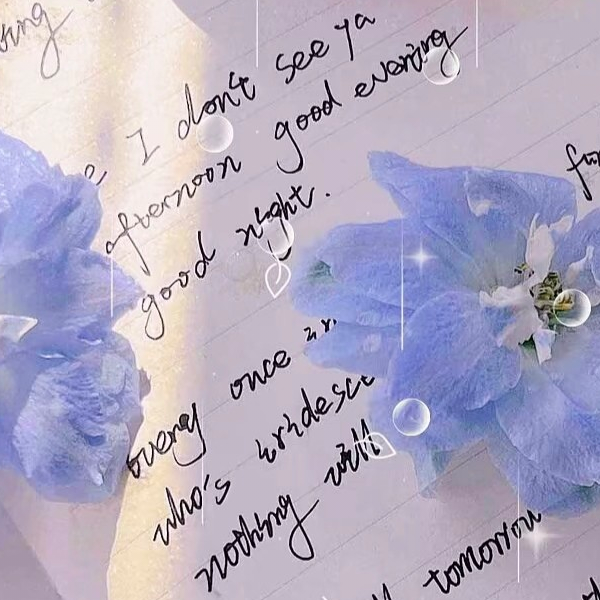 I don't see ya
afternoon good evening
good night.
every once in
who's iridesce
nothing will
tomorrow